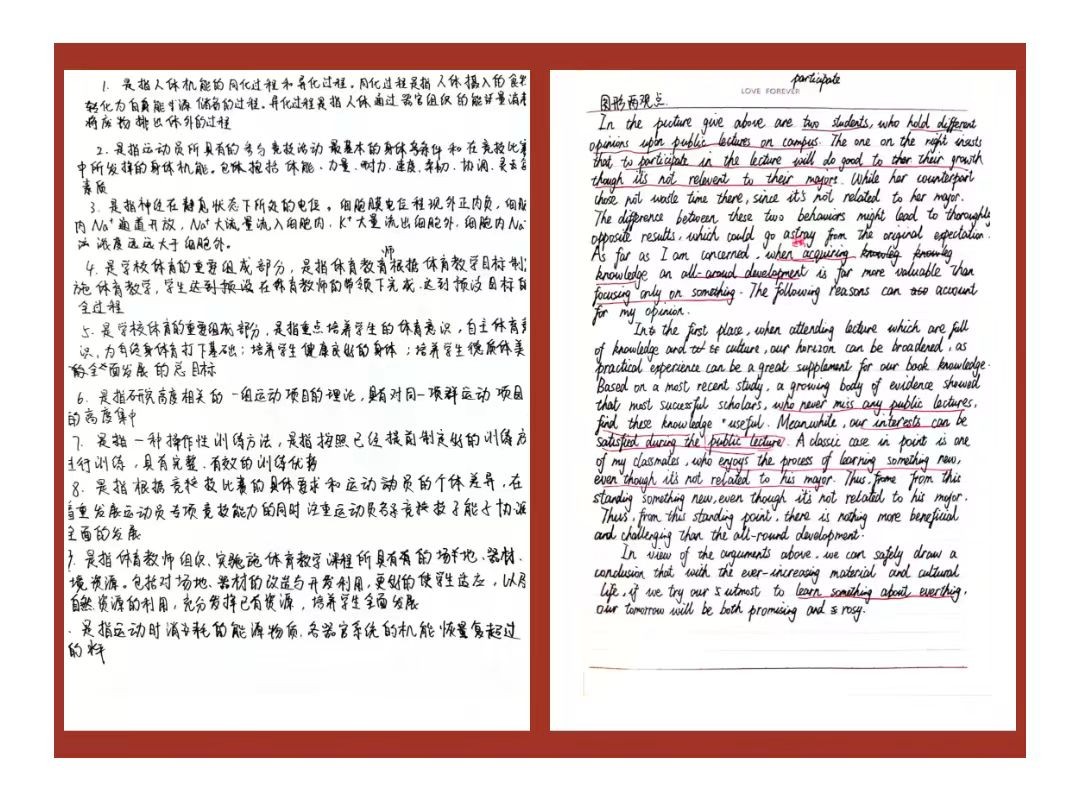 1. 是指人体机能的同化过程和异化过程。同化过程是指人体摄入的食物
转化为自身能生源储备的过程。异化过程是指人体通过器官组织的能量消耗
将废物排出体外的过程
2. 是指运动员所具有的参与竞技活动最基本的身体条件和在竞技比赛
中所发挥的身体机能。包括体能、力量、耐力、速度、柔韧、协调、灵
素质
3. 是指神经在静息状态下所处的电位。细胞膜电位呈现外正内负,细胞
内Na⁺通道开放,Na⁺大量流入细胞内,K⁺大量流出细胞外,细胞内Na
浓度远远大于细胞外。
4. 是学校体育的重要组成部分,是指体育教师根据体育教学目标制
施体育教学,学生在体育教师的带领下完成、达到预设目标的
全过程
5. 是学校体育的重要组成部分,是指重点培养学生的体育意识,自主体育意
识,为终身体育打下基础;培养学生健康良好的身体;培养学生德质体美
的全面发展的总目标
6. 是指研究高度相关的一组运动项目的理论,具有对同一项群运动项目
的高度集中
7. 是指一种操作性训练方法,是指按照已经提前制定好的训练方
进行训练,具有完整、有效的训练优势
8. 是指根据竞技比赛的具体要求和运动员的个体差异,在
重发展运动员专项竞技能力的同时注重运动员各竞技子能力协调
全面的发展
9. 是指体育教师组织、实施体育教学课程所具有的场地、器材、
境资源。包括对场地、器材的改造与开发利用,更好的使学生适应,以及
自然资源的利用,充分发挥已有资源,培养学生全面发展
. 是指运动时消耗的能源物质、各器官系统的机能恢复起过
的
participate
LOVE FOREVER
图形两观点.
In the picture give above are two students, who hold different
opinions upon public lectures on campus. The one on the right insists
that to participate in the lecture will do good to their growth
though it's not relevent to their majors. While her counterpart
chose not waste time there, since it's not related to her major.
The difference between these two behaviors might lead to thoroughly
opposite results, which could go astray from the original expectation.
As far as I am concerned, when acquiring
knowledge an all-aroud development is far more valuable than
focusing only on something. The following reasons can account
for my opinion.
In the first place, when attending lecture which are full
of knowledge and culture, our horizon can be broadened, as
practical experience can be a great supplement for our book knowledge.
Based on a most recent study, a growing body of evidence showed
that most successful scholars, who never miss any public lectures,
find these knowledge useful. Meanwhile, our interests can be
satisfied during the public lecture. A classic case in point is one
of my classmates, who enjoys the process of learning something new,
even though it's not related to his major. Thus, from this
standing something new, even though it's not related to his major.
Thus, from this standing point, there is nothing more beneficial
and challenging than the all-round development.
In view of the arguments above, we can safely draw a
conclusion that with the ever-increasing material and cultural
life, if we try our utmost to learn something about everthing,
our tomorrow will be both promising and rosy.